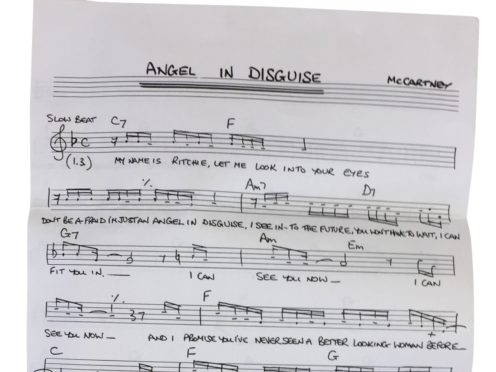 ANGEL IN DISGUISE
McCARTNEY
SLOW BEAT C7 F
(1.3) MY NAME IS RITCHIE, LET ME LOOK INTO YOUR EYES
Am7 D7
DON'T BE AFRAID I'M JUST AN ANGEL IN DISGUISE, I SEE IN-TO THE FUTURE, YOU WON'T HAVE TO WAIT, I CAN
G7 Am Em
FIT YOU IN. — I CAN SEE YOU NOW — I CAN
F
SEE YOU NOW — AND I PROMISE YOU'VE NEVER SEEN A BETTER LOOKING WOMAN BEFORE —
C F G